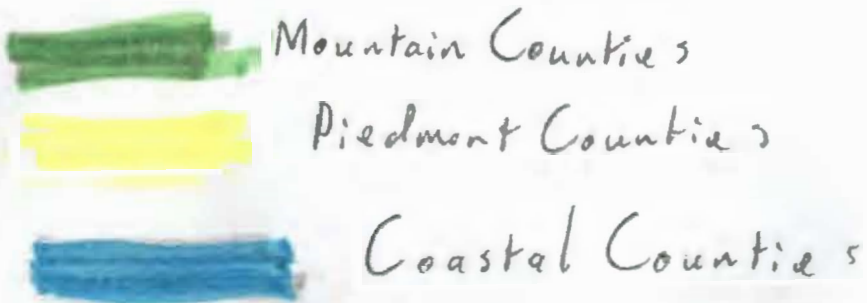 Mountain Counties
Piedmont Counties
Coastal Counties